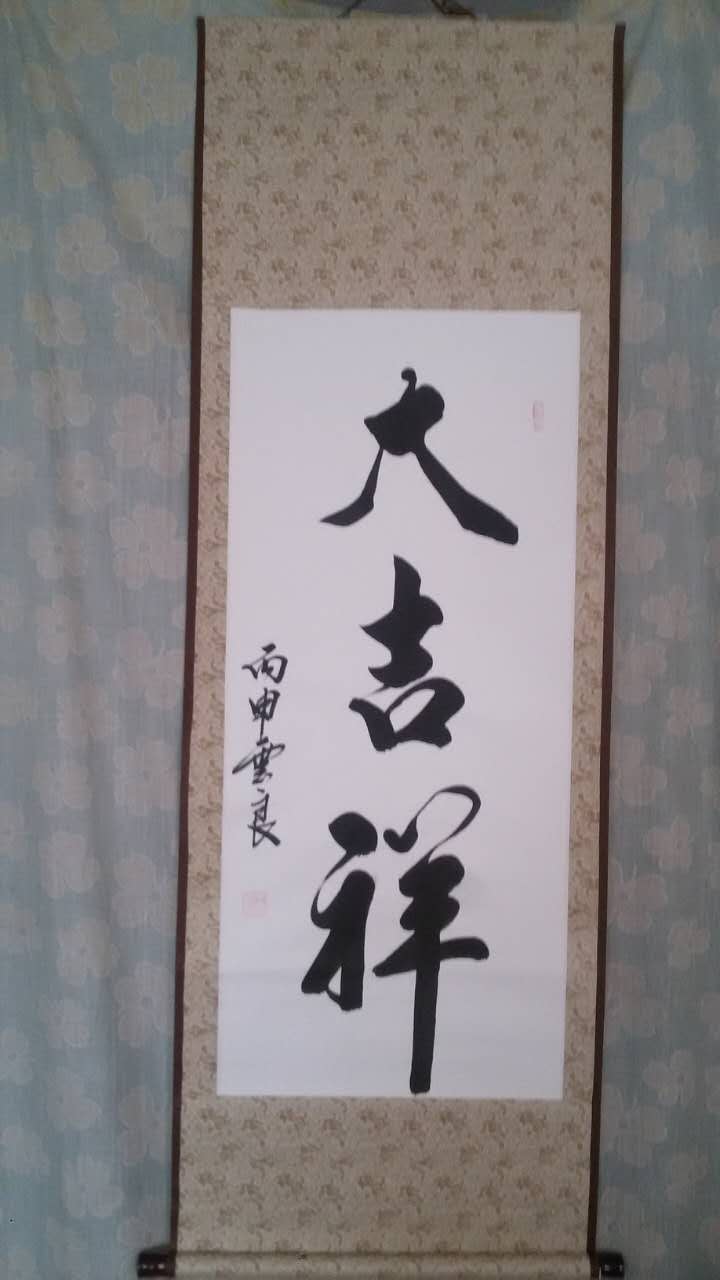 大吉祥
丙申雲良